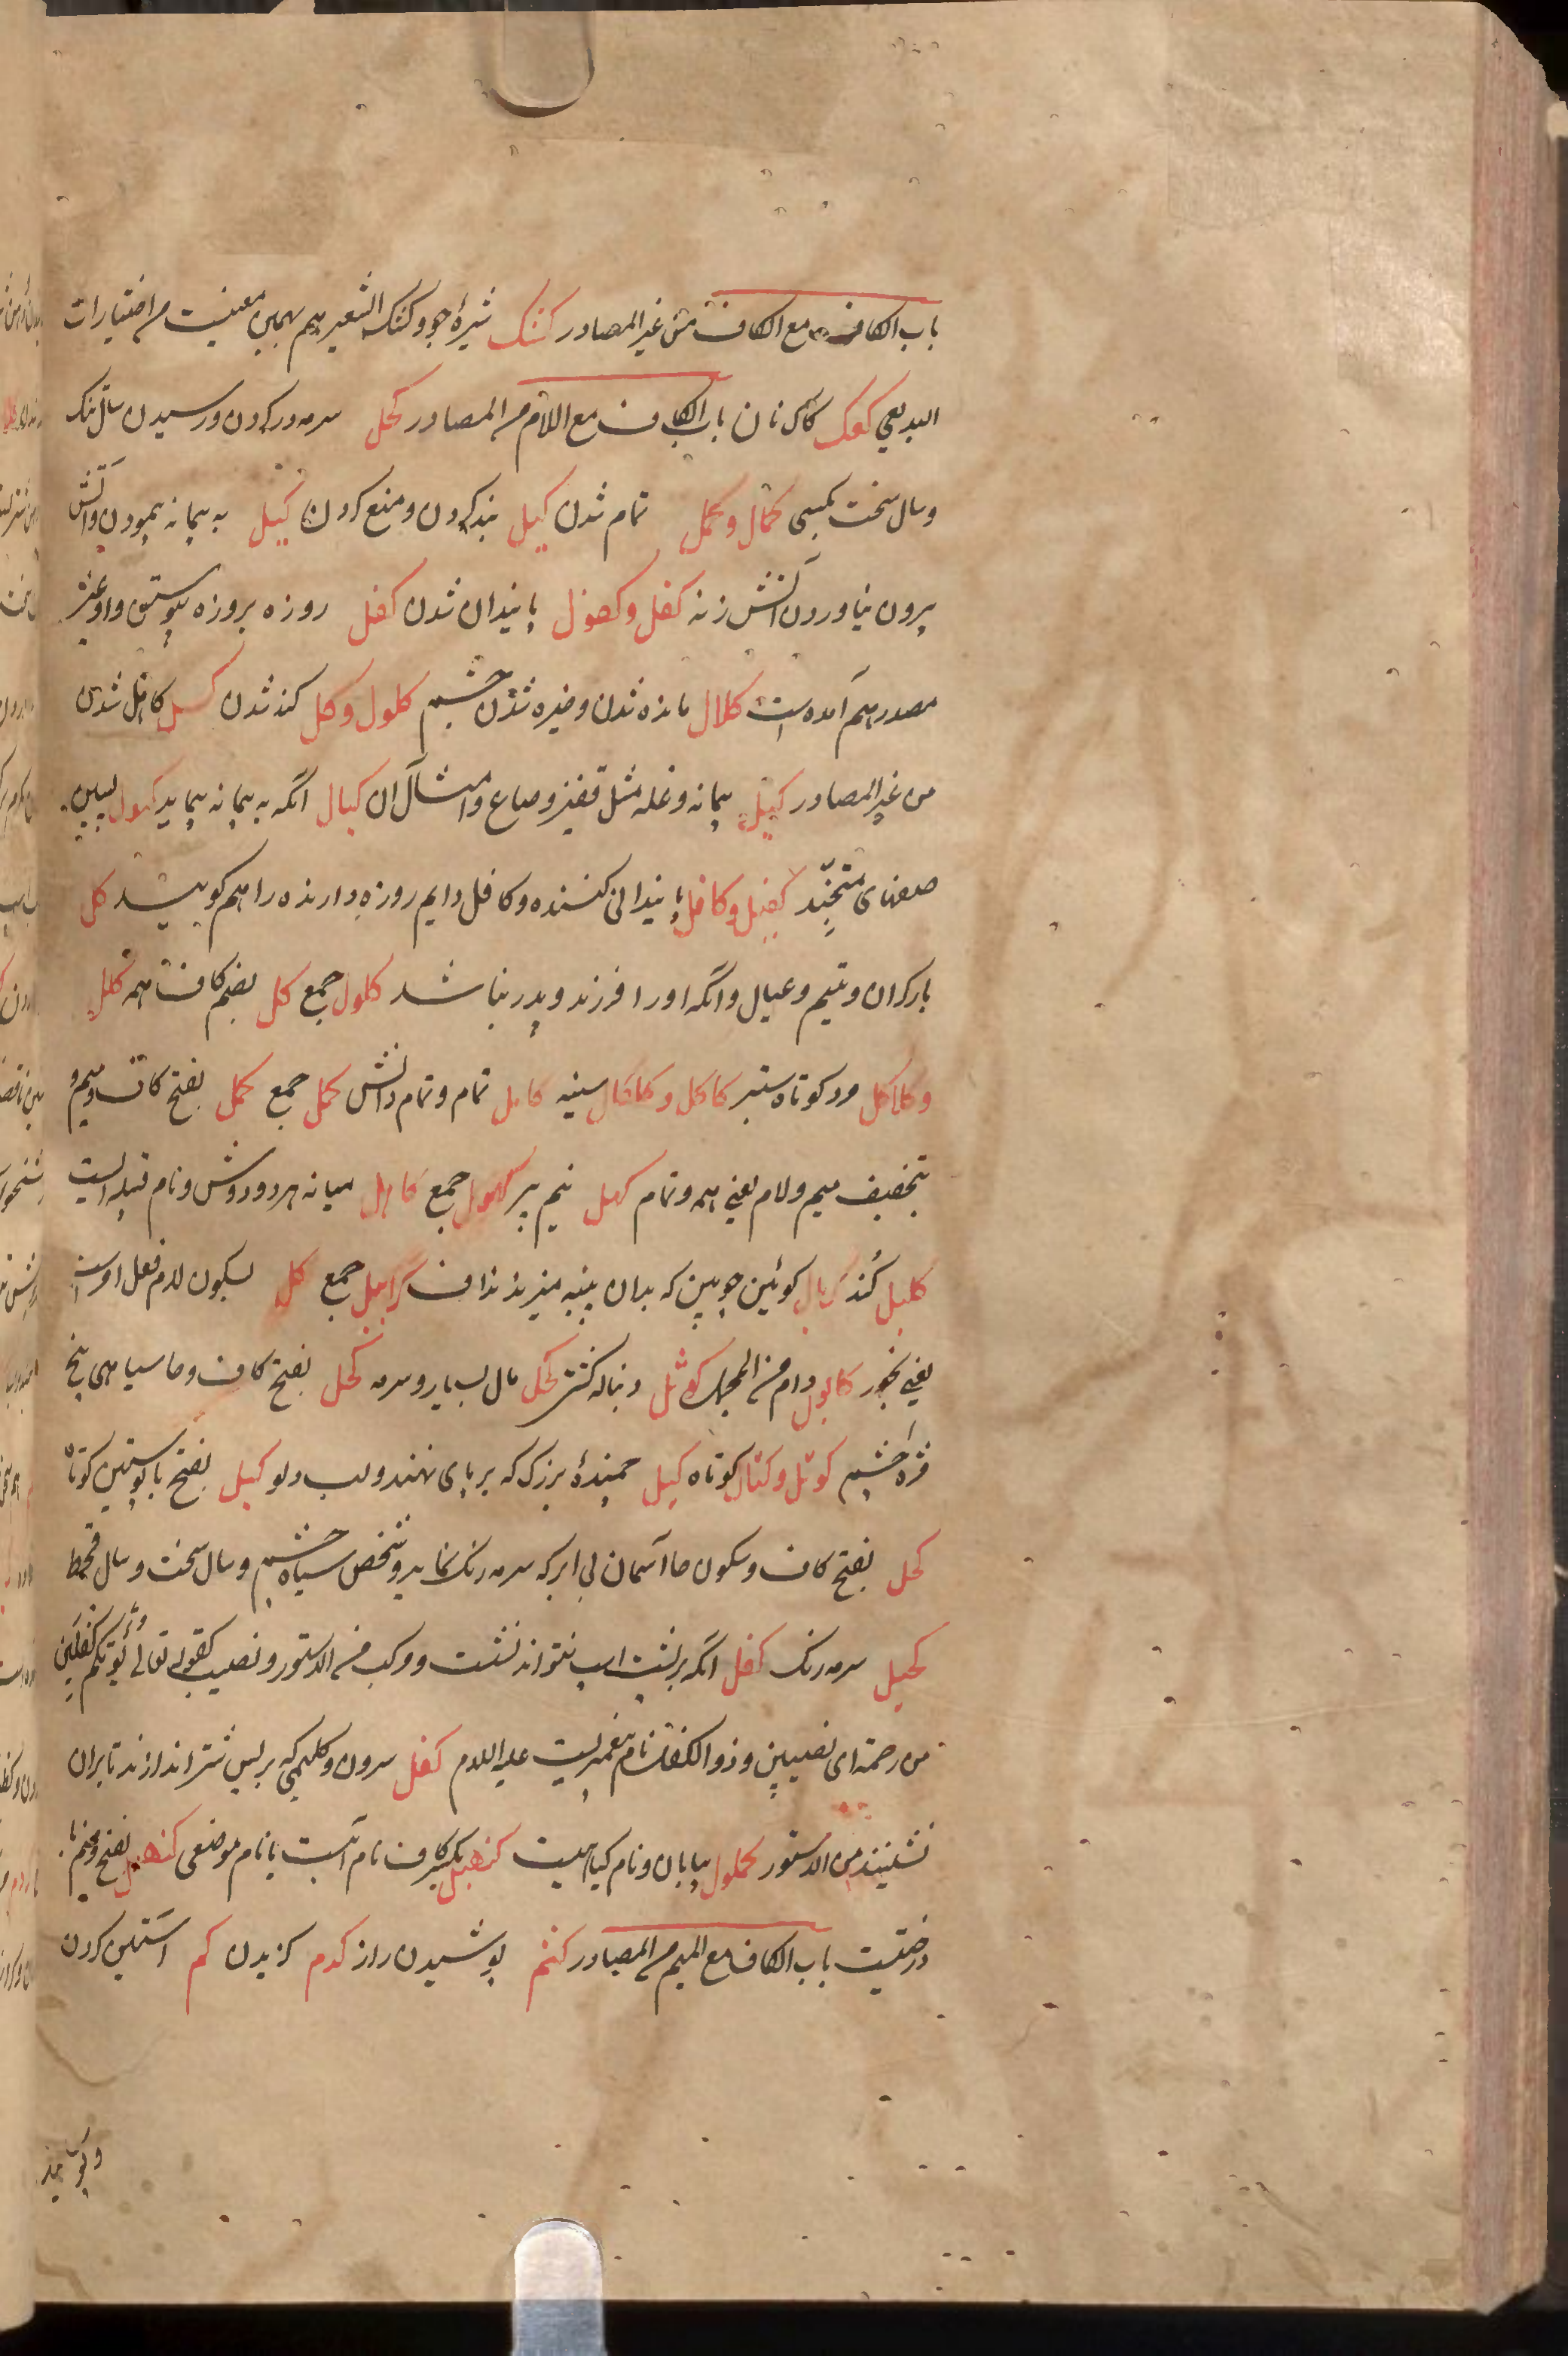 باب الکاف مع الکاف من غیر المصادر کشک شیرۀ جو و کشک الشعیر هم بهمین معنیست من اختیارات
البدیعی کعک کاک نان باب الکاف مع اللام من المصادر کحل سرمه در کردن و رسیدن سال تنک
و سال سخت بکسی کمال و کمل تمام شدن کبل بند کردن و منع کردن کیل به پیمانه پیمودن و آتش
بیرون نیاوردن آتش زنه کفل و کفول پایندان شدن کفل روزه بروزه پیوستن و او غیر
مصدر هم آمده است کلال مانده شدن و خیره شدن چشم کلول و کل کند شدن کسل کاهل شدن
من غیر المصادر کیل پیمانه و غله مثل قفیز و صاع و امثال آن کیال آنکه به پیمانه پیماید کیول پسین
صفهای جنگ کفیل و کافل پایندانی کننده و کافل دایم روزه دارنده را هم گویند کل
بار گران و یتیم و عیال و آنکه او را فرزند و پدر نباشد کلول جمع کل بضم کاف همه کلل
و کلاکل مرد کوتاه ستبر کلکل و کلکال سینه کامل تمام و تمام دانش کمل جمع کمل بفتح کاف و میم و
بتخفیف میم و لام یعنی همه و تمام کهل نیم پیر کهول جمع کاهل میانه هر دو دوش و نام قبیله ایست
کلیل کند کربال کوئین چوبین که بدان پنبه میزند نداف کرابیل جمع کل بسکون لام فعل امرست
یعنی بخور کابول دام من المجمل کوثل دنباله کشتی کحل مال بسیار و سرمه کحل بفتح کاف و حا سیاهی بیخ
مژه چشم کوتل و کتال کوتاه کبل بند بزرک که بر پای نهند و لب دلو کبل بفتح با پوستین کوتاه
کحل بفتح کاف و سکون حا آسمان بی ابر که سرمه رنک نماید و شخص سیاه چشم و سال سخت و سال قحط
کحیل سرمه رنک کفل آنکه بر پشت اسب نتواند نشست و مرکب من الدستور و نصیب کقوله تعالی یؤتکم کفلین
من رحمته ای نصیبین و ذو الکفل نام پیغمبریست علیه السلام کفل سرون و کلیمی که بر پس شتر اندازند تا بران
نشینند من الدستور کملول بیابان و نام کیاهیست کنهل بکسر کاف نام آبست یا نام موضعی کنهبل بفتح و ضم با
درختیست باب الکاف مع المیم من المصادر کتم پوشیدن راز کدم کزیدن کم آستین کردن